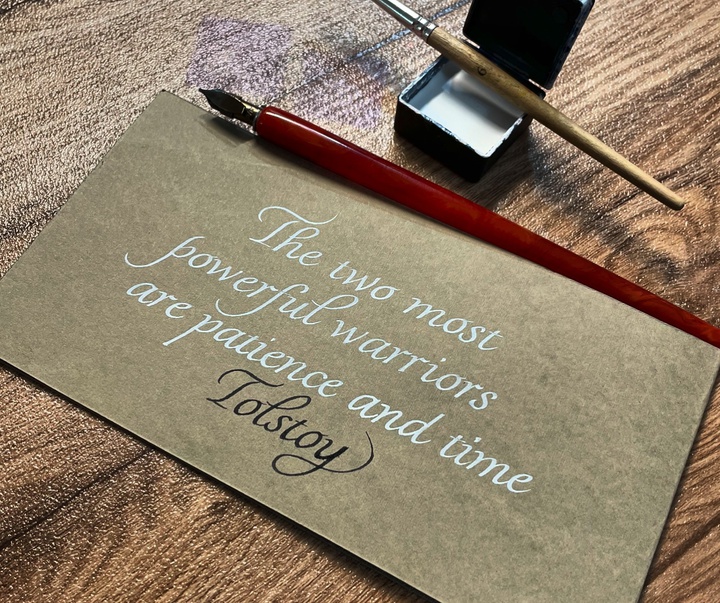 The two most
powerful warriors
are patience and time
Tolstoy